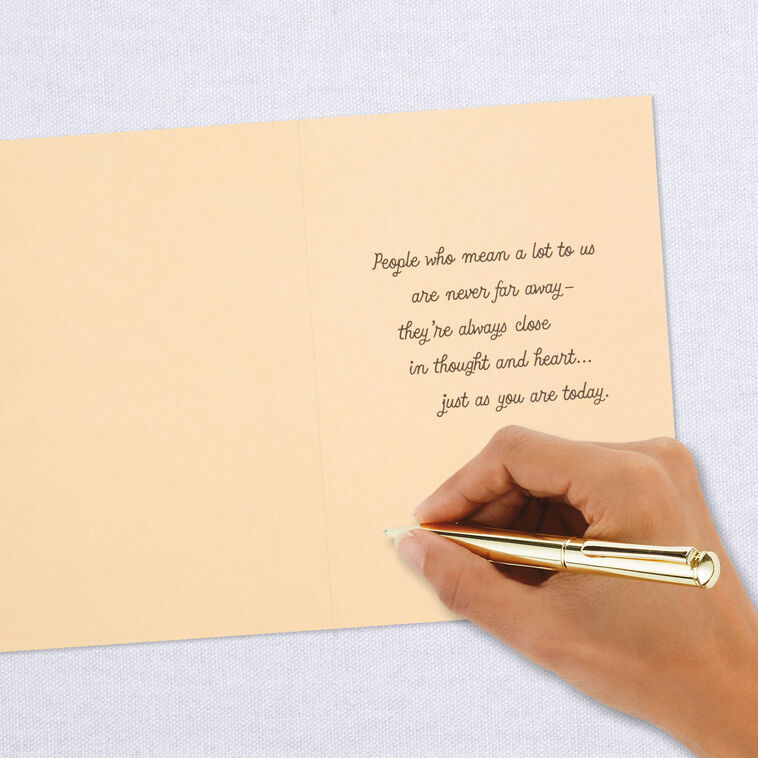 People who mean a lot to us
are never far away–
they're always close
in thought and heart...
just as you are today.